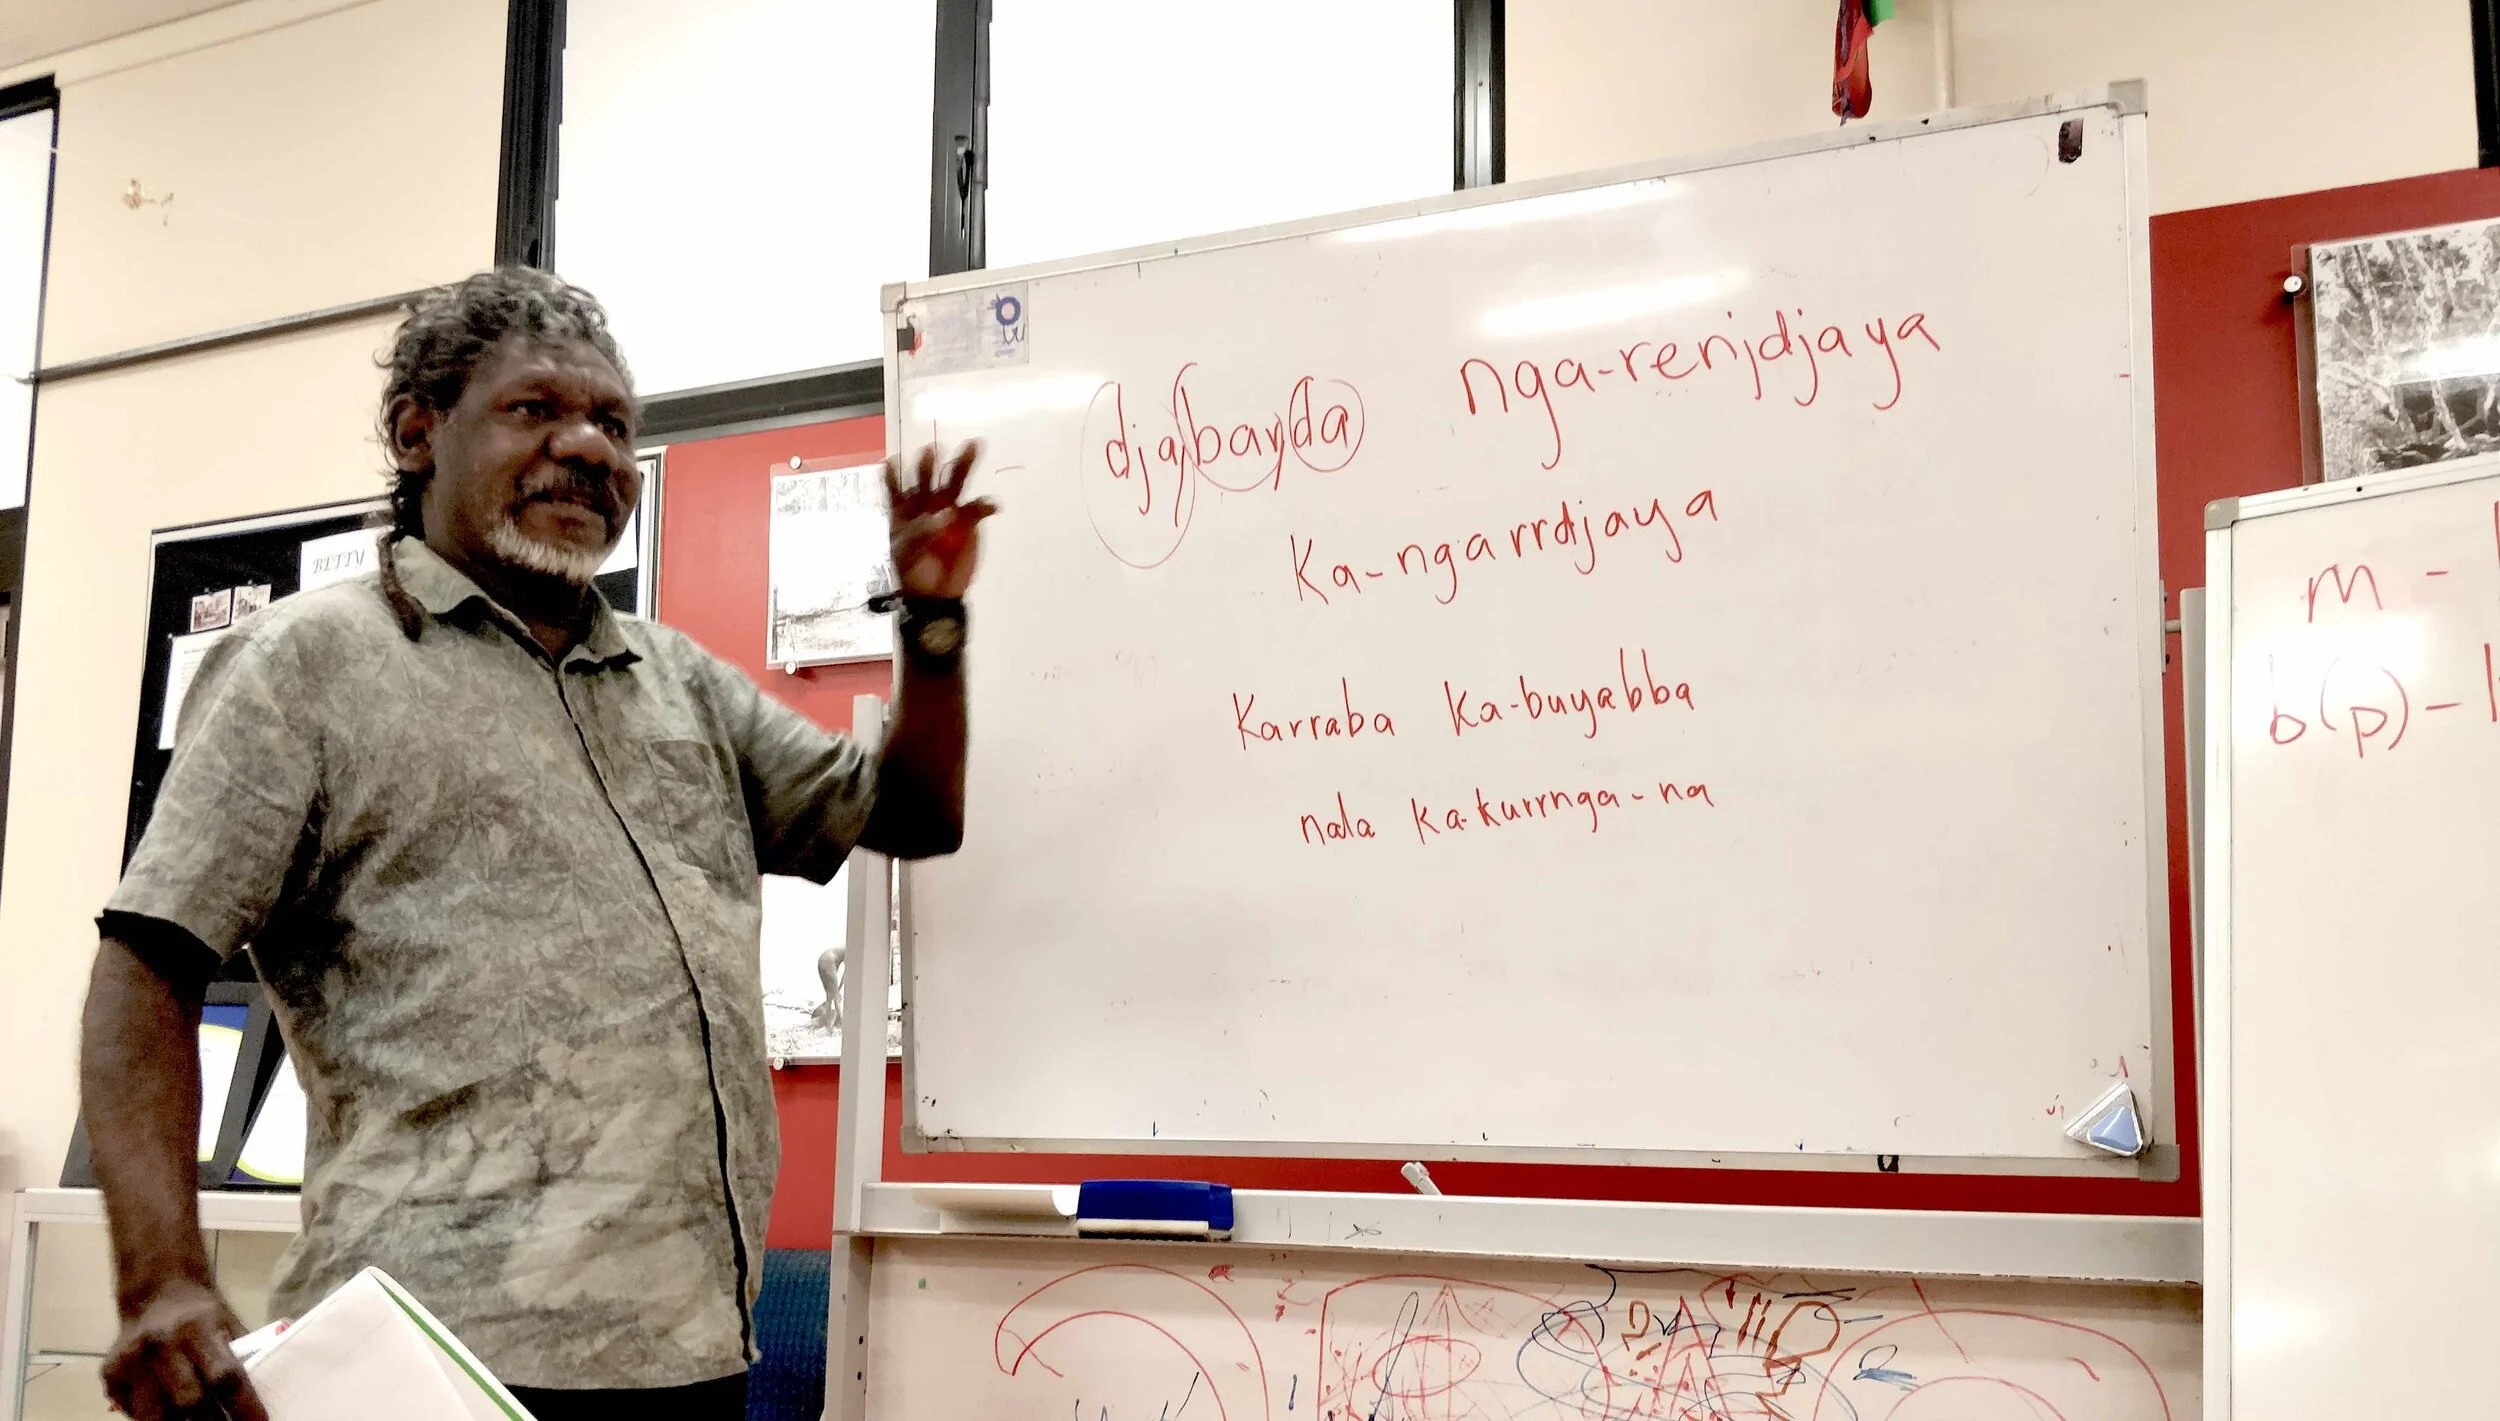 BETTY
djabarrda nga-renjdjaya
Ka-ngarrdjaya
Karraba Ka-buyabba
nala Ka-kurrnga-na
m -
b(p) -